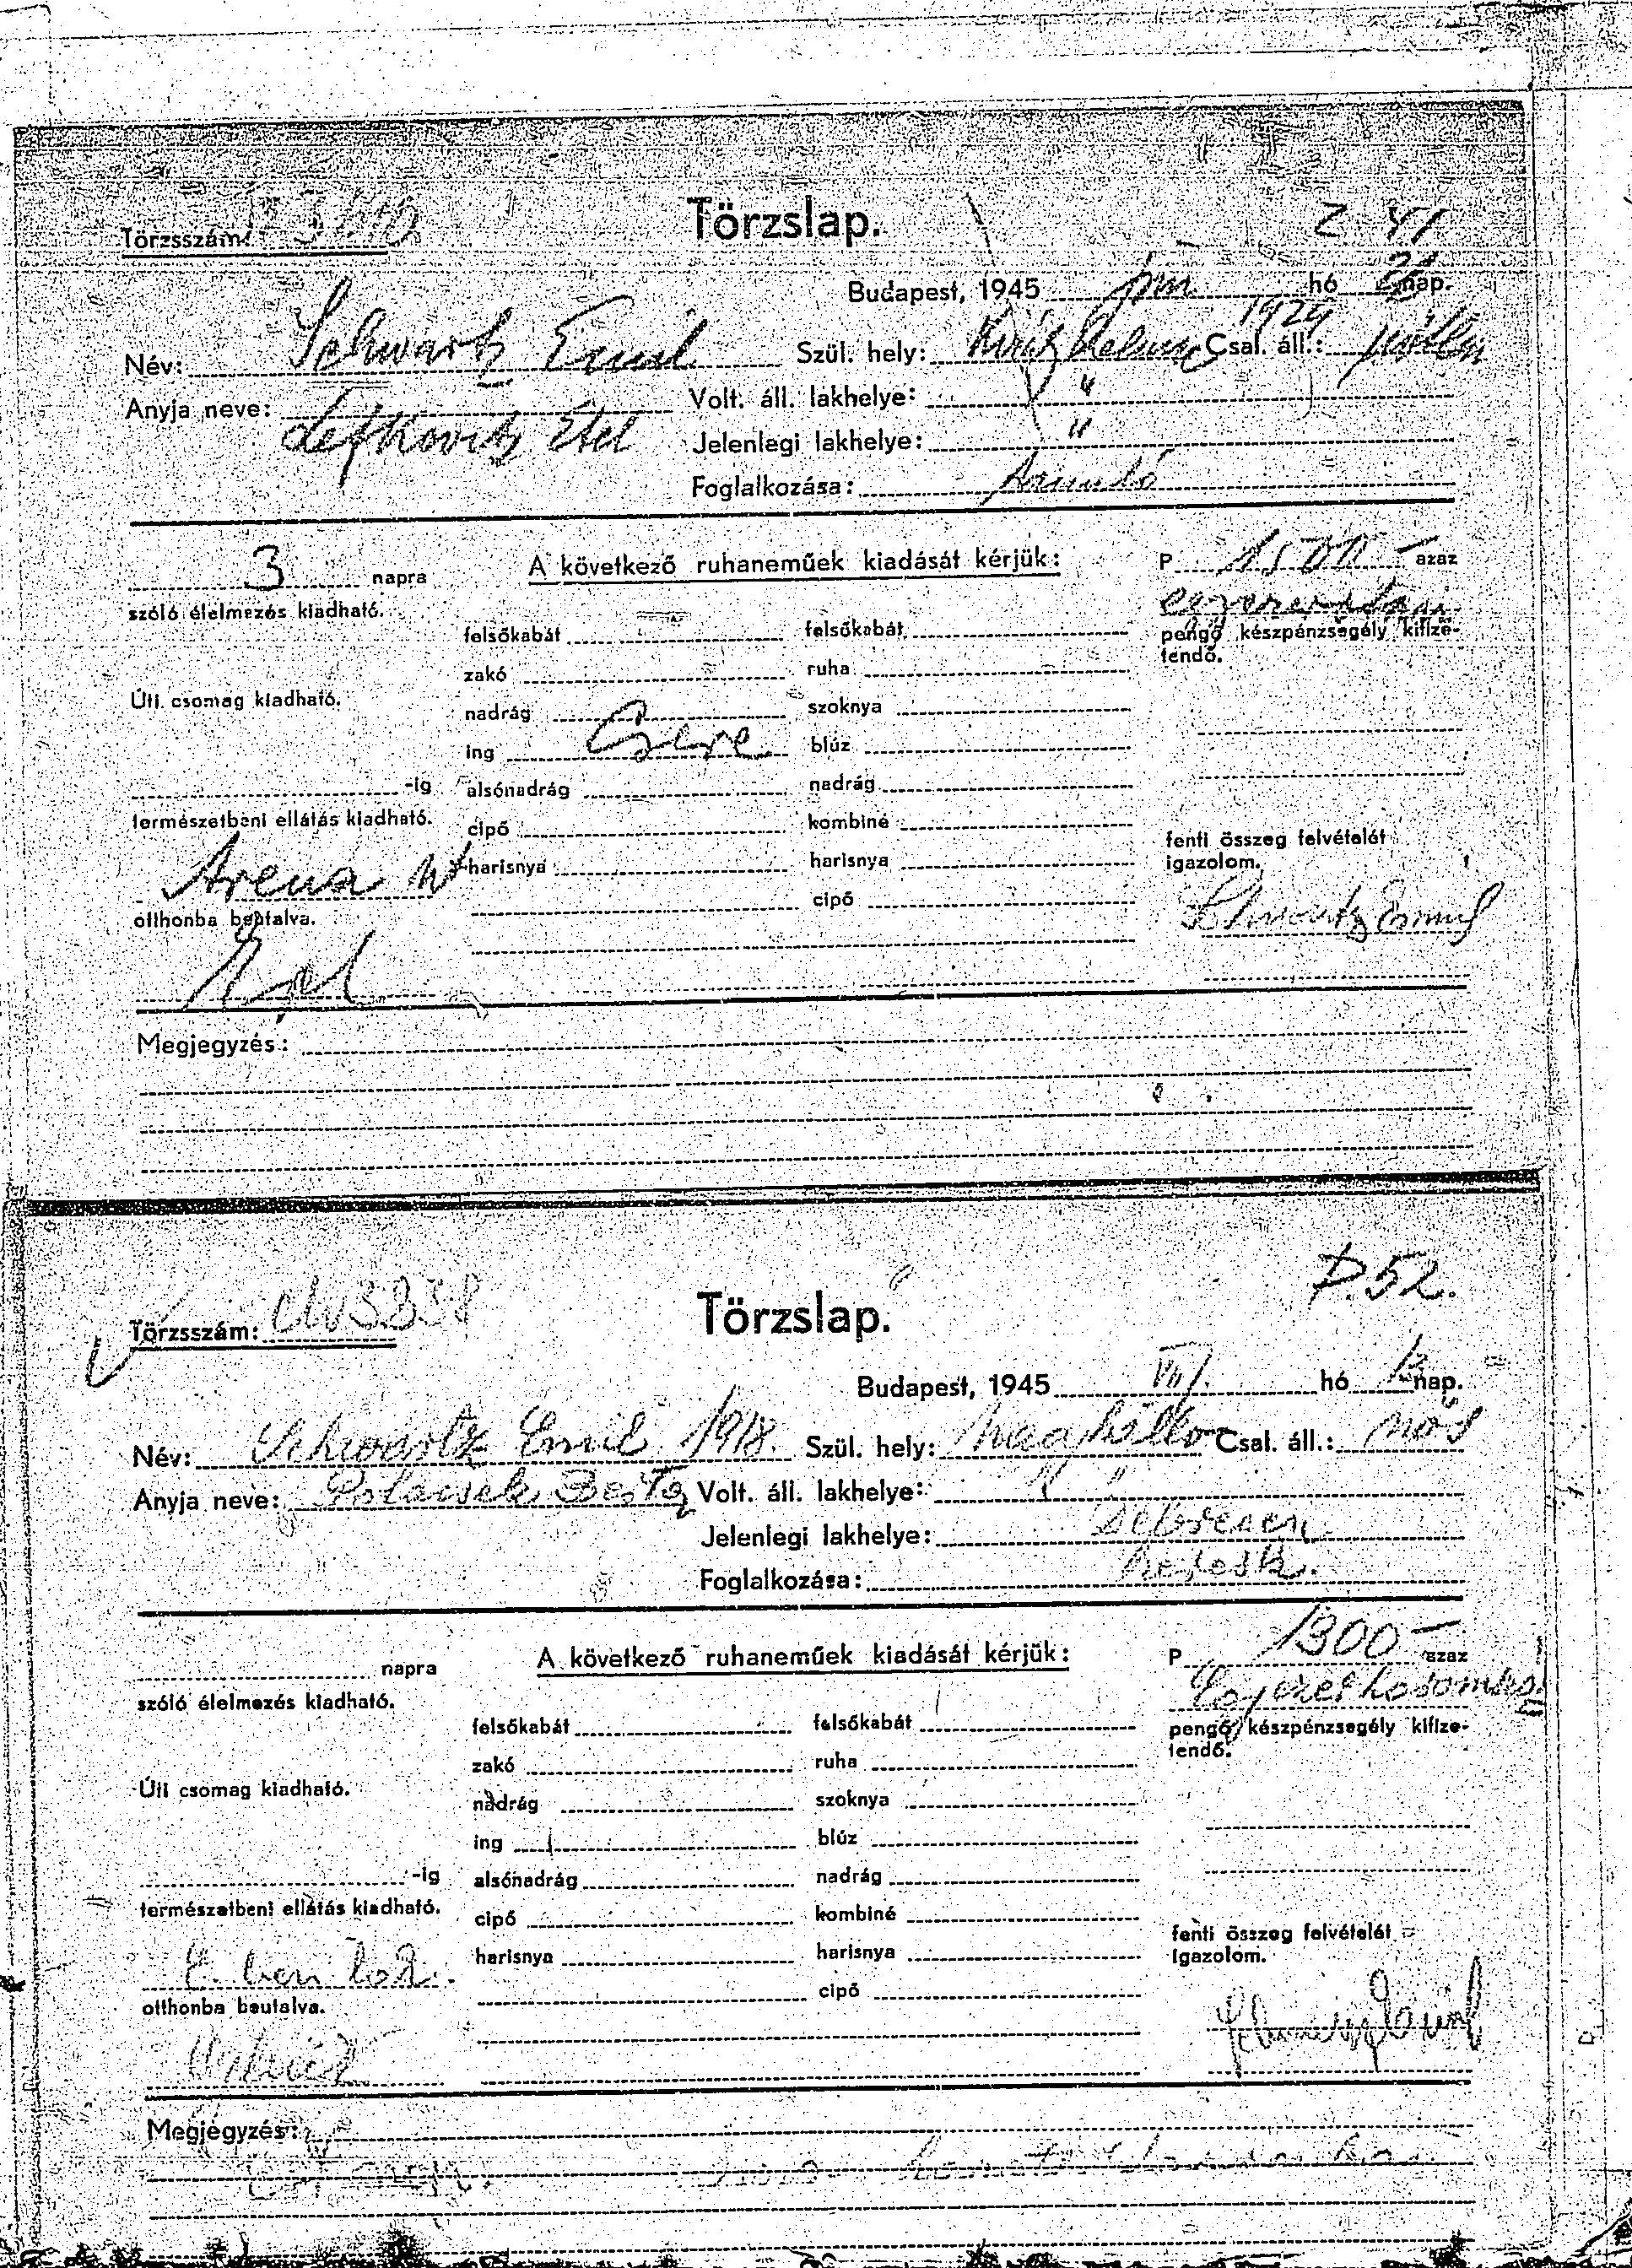 Törzsszám:
Törzslap.
Z 41
Budapest, 1945 jun hó nap.
1924
Név: Schwartz Emil Szül. hely: Csal. áll.: nőtlen
Anyja neve: Lefkovits Etel Volt. áll. lakhelye: "
Jelenlegi lakhelye: "
Foglalkozása:
3 napra
szóló élelmezés kiadható.
Úti csomag kiadható.
-ig
természetbeni ellátás kiadható.
Arena út
otthonba beutalva.
A következő ruhaneműek kiadását kérjük:
felsőkabát
zakó
nadrág
ing Csere
alsónadrág
cipő
harisnya
felsőkabát
ruha
szoknya
blúz
nadrág
kombiné
harisnya
cipő
P 1500 — azaz
pengő készpénzsegély kifize-
tendő.
fenti összeg felvételét
igazolom.
Schwartz Emil
Megjegyzés:
P.52.
Törzsszám:
Törzslap.
Budapest, 1945 VII. hó nap.
Név: Schwartz Emil 1918. Szül. hely: Csal. áll.: nős
Anyja neve: Polacsek Berta Volt. áll. lakhelye: "
Jelenlegi lakhelye: Debrecen
Foglalkozása: keresk.
napra
szóló élelmezés kiadható.
Úti csomag kiadható.
-ig
természetbeni ellátás kiadható.
otthonba beutalva.
A következő ruhaneműek kiadását kérjük:
felsőkabát
zakó
nadrág
ing
alsónadrág
cipő
harisnya
felsőkabát
ruha
szoknya
blúz
nadrág
kombiné
harisnya
cipő
P 1300 — azaz
pengő készpénzsegély kifize-
tendő.
fenti összeg felvételét
igazolom.
Megjegyzés: